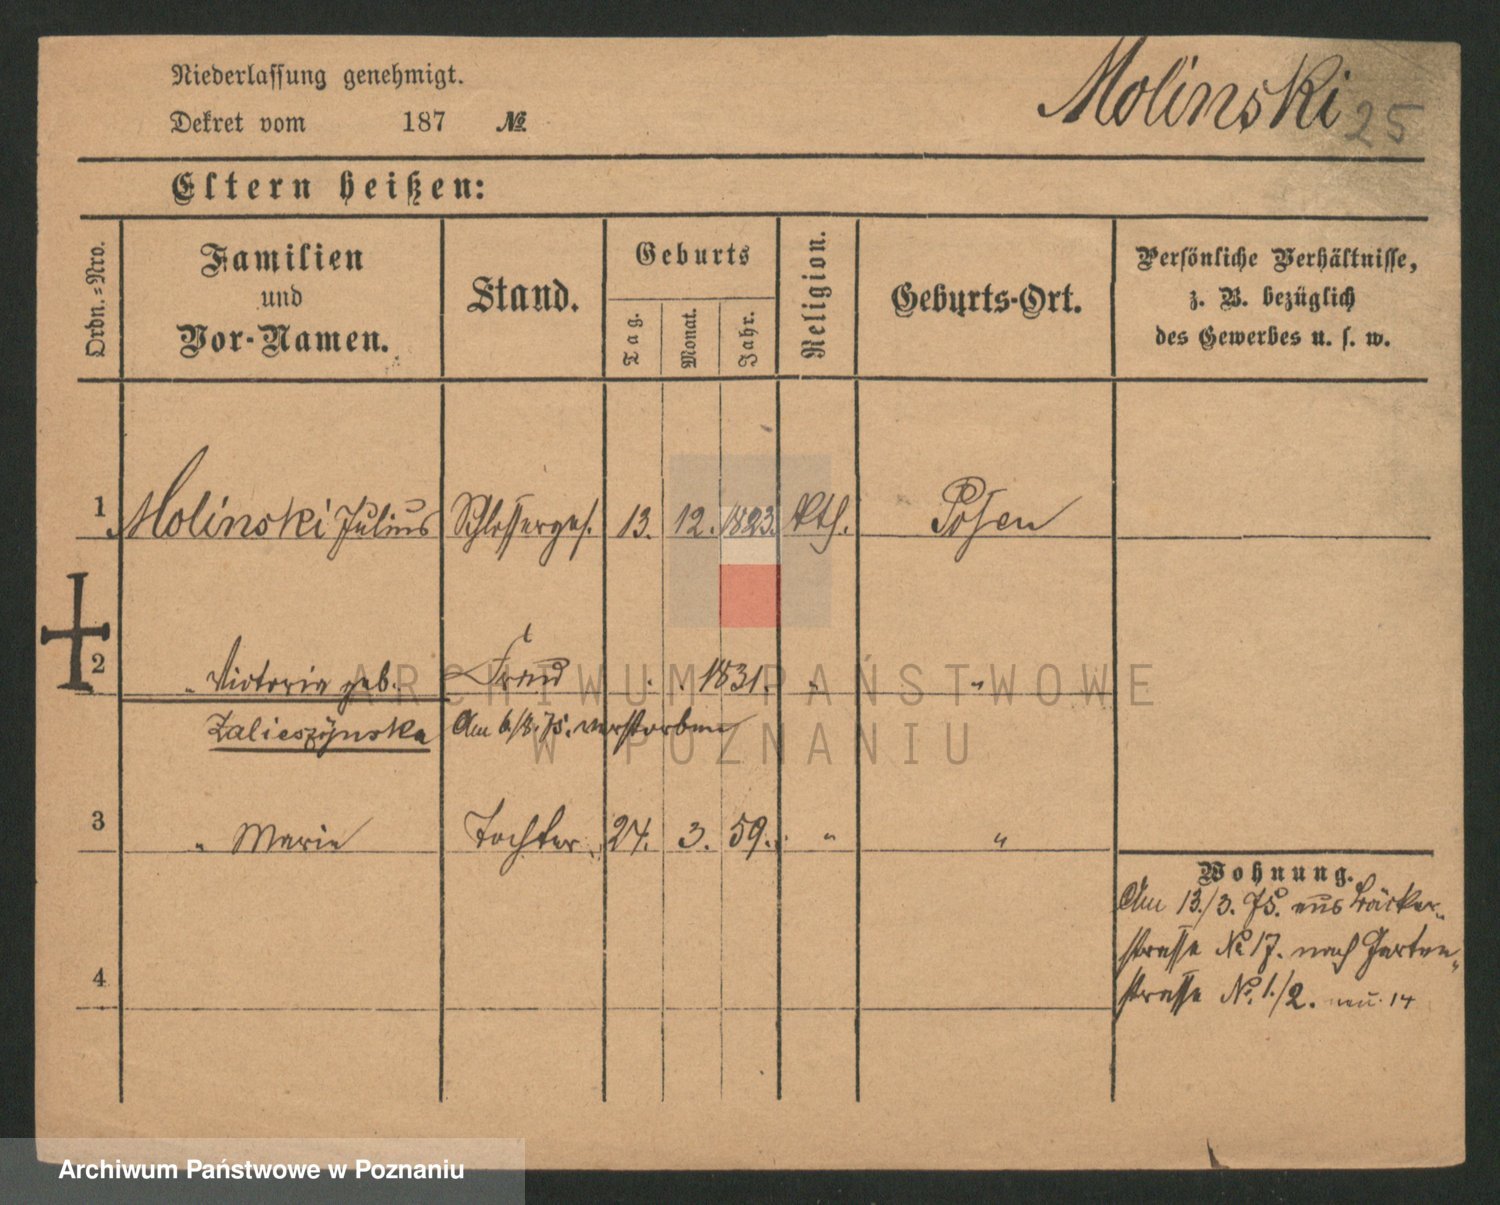 Niederlassung genehmigt.
Dekret vom 187 №
Molinski 25
Eltern heißen:
Ordn.-Nro.
Familien und Vor-Namen.
Stand.
Geburts
Tag. Monat. Jahr.
Religion.
Geburts-Ort.
Persönliche Verhältnisse,
z. B. bezüglich
des Gewerbes u. s. w.
1 Molinski Julius Schlosserges. 13. 12. 1823. Kth. Posen
2 " Victoria geb. Frau . . 1831. " "
Zalieszÿnska Am 6/8. 75. verstorben
3 " Marie Tochter. 24. 3. 59. " "
Wohnung.
Am 13./3. 75. aus Bäcker-
strasse № 17. nach Garten-
strasse №. 1./2. neu. 14
4
ARCHIWUM PAŃSTWOWE
W POZNANIU
Archiwum Państwowe w Poznaniu